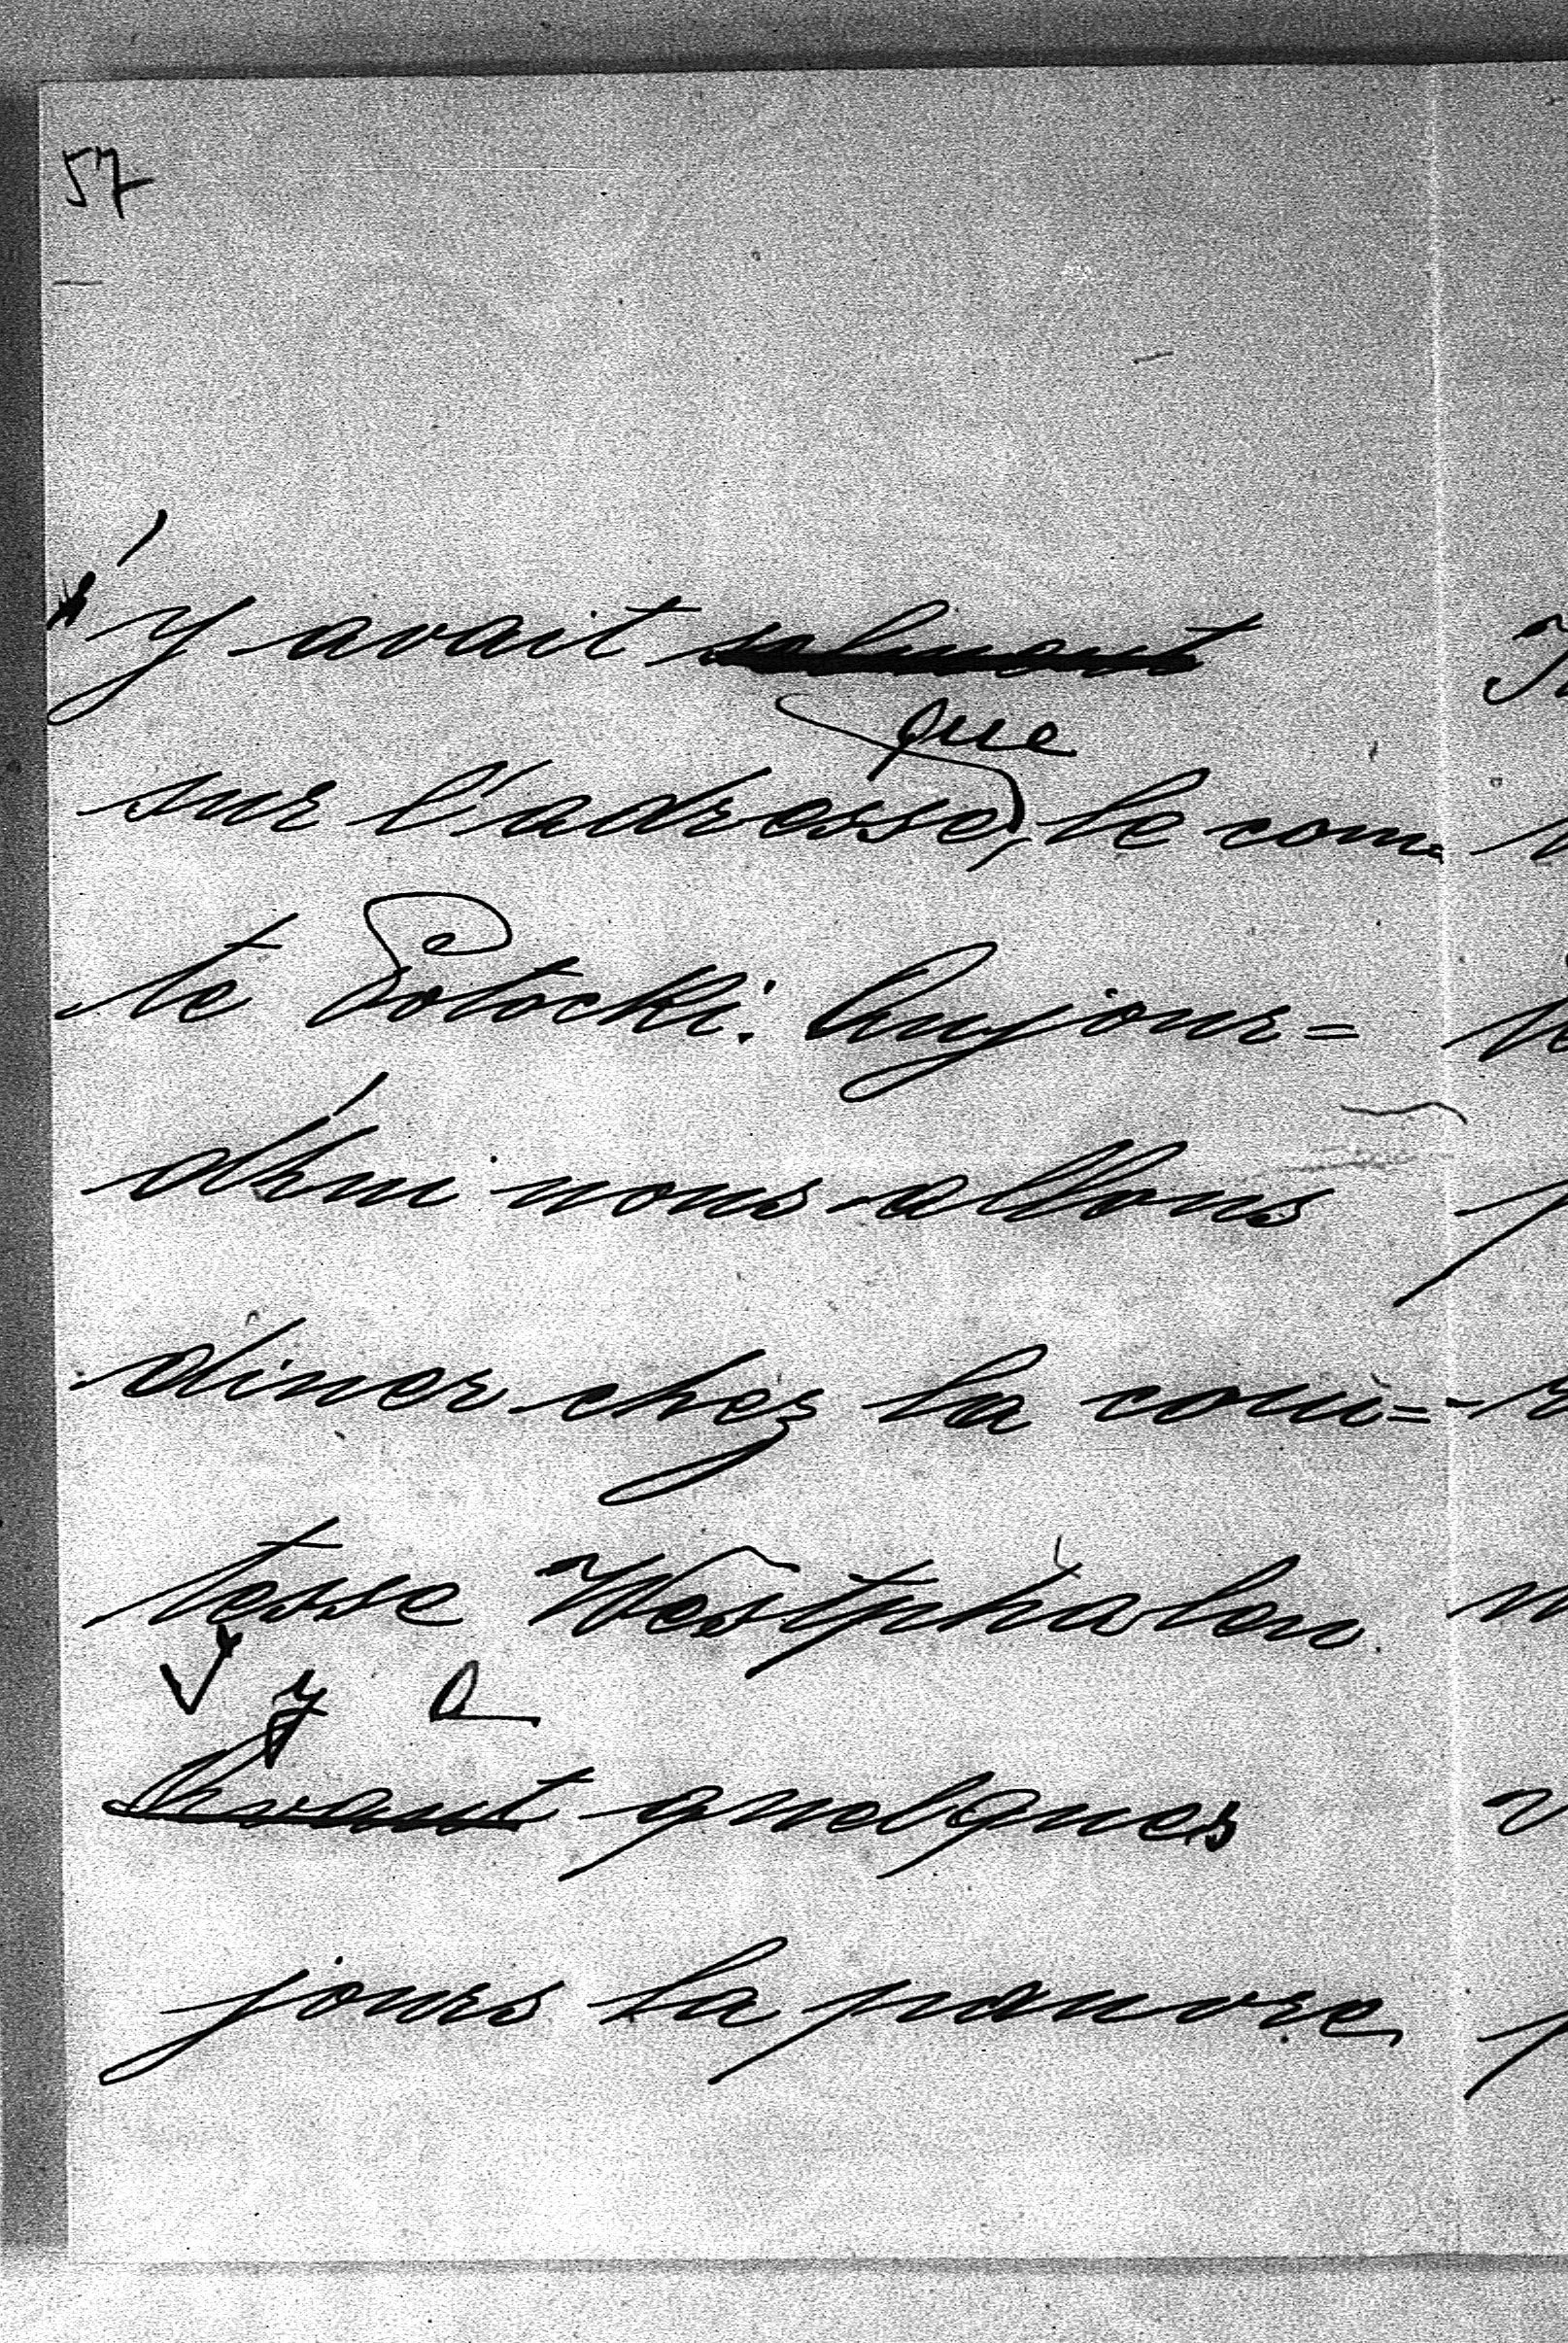 57
y avait solument
que
sur l'adresse, le com-
te Potocki. Aujour=
d'hui nous allons
diner chez la com=
tesse Westphalen
y a
Avant quelques
jours la pauvre